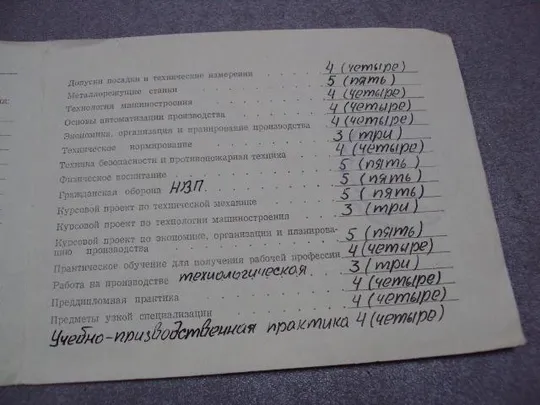 Допуски посадки и технические измерения 4 (четыре)
Металлорежущие станки 5 (пять)
Технология машиностроения 4 (четыре)
Основы автоматизации производства 4 (четыре)
Экономика, организация и планирование производства 4 (четыре)
Техническое нормирование 3 (три)
Техника безопасности и противопожарная техника 4 (четыре)
Физическое воспитание 5 (пять)
Гражданская оборона НВП 5 (пять)
Курсовой проект по технической механике 5 (пять)
Курсовой проект по технологии машиностроения 3 (три)
Курсовой проект по экономике, организации и планирова-
нию производства 5 (пять)
Практическое обучение для получения рабочей профессии 4 (четыре)
Работа на производстве технологическая 3 (три)
Преддипломная практика 4 (четыре)
Предметы узкой специализации 4 (четыре)
Учебно-призводственная практика 4 (четыре)